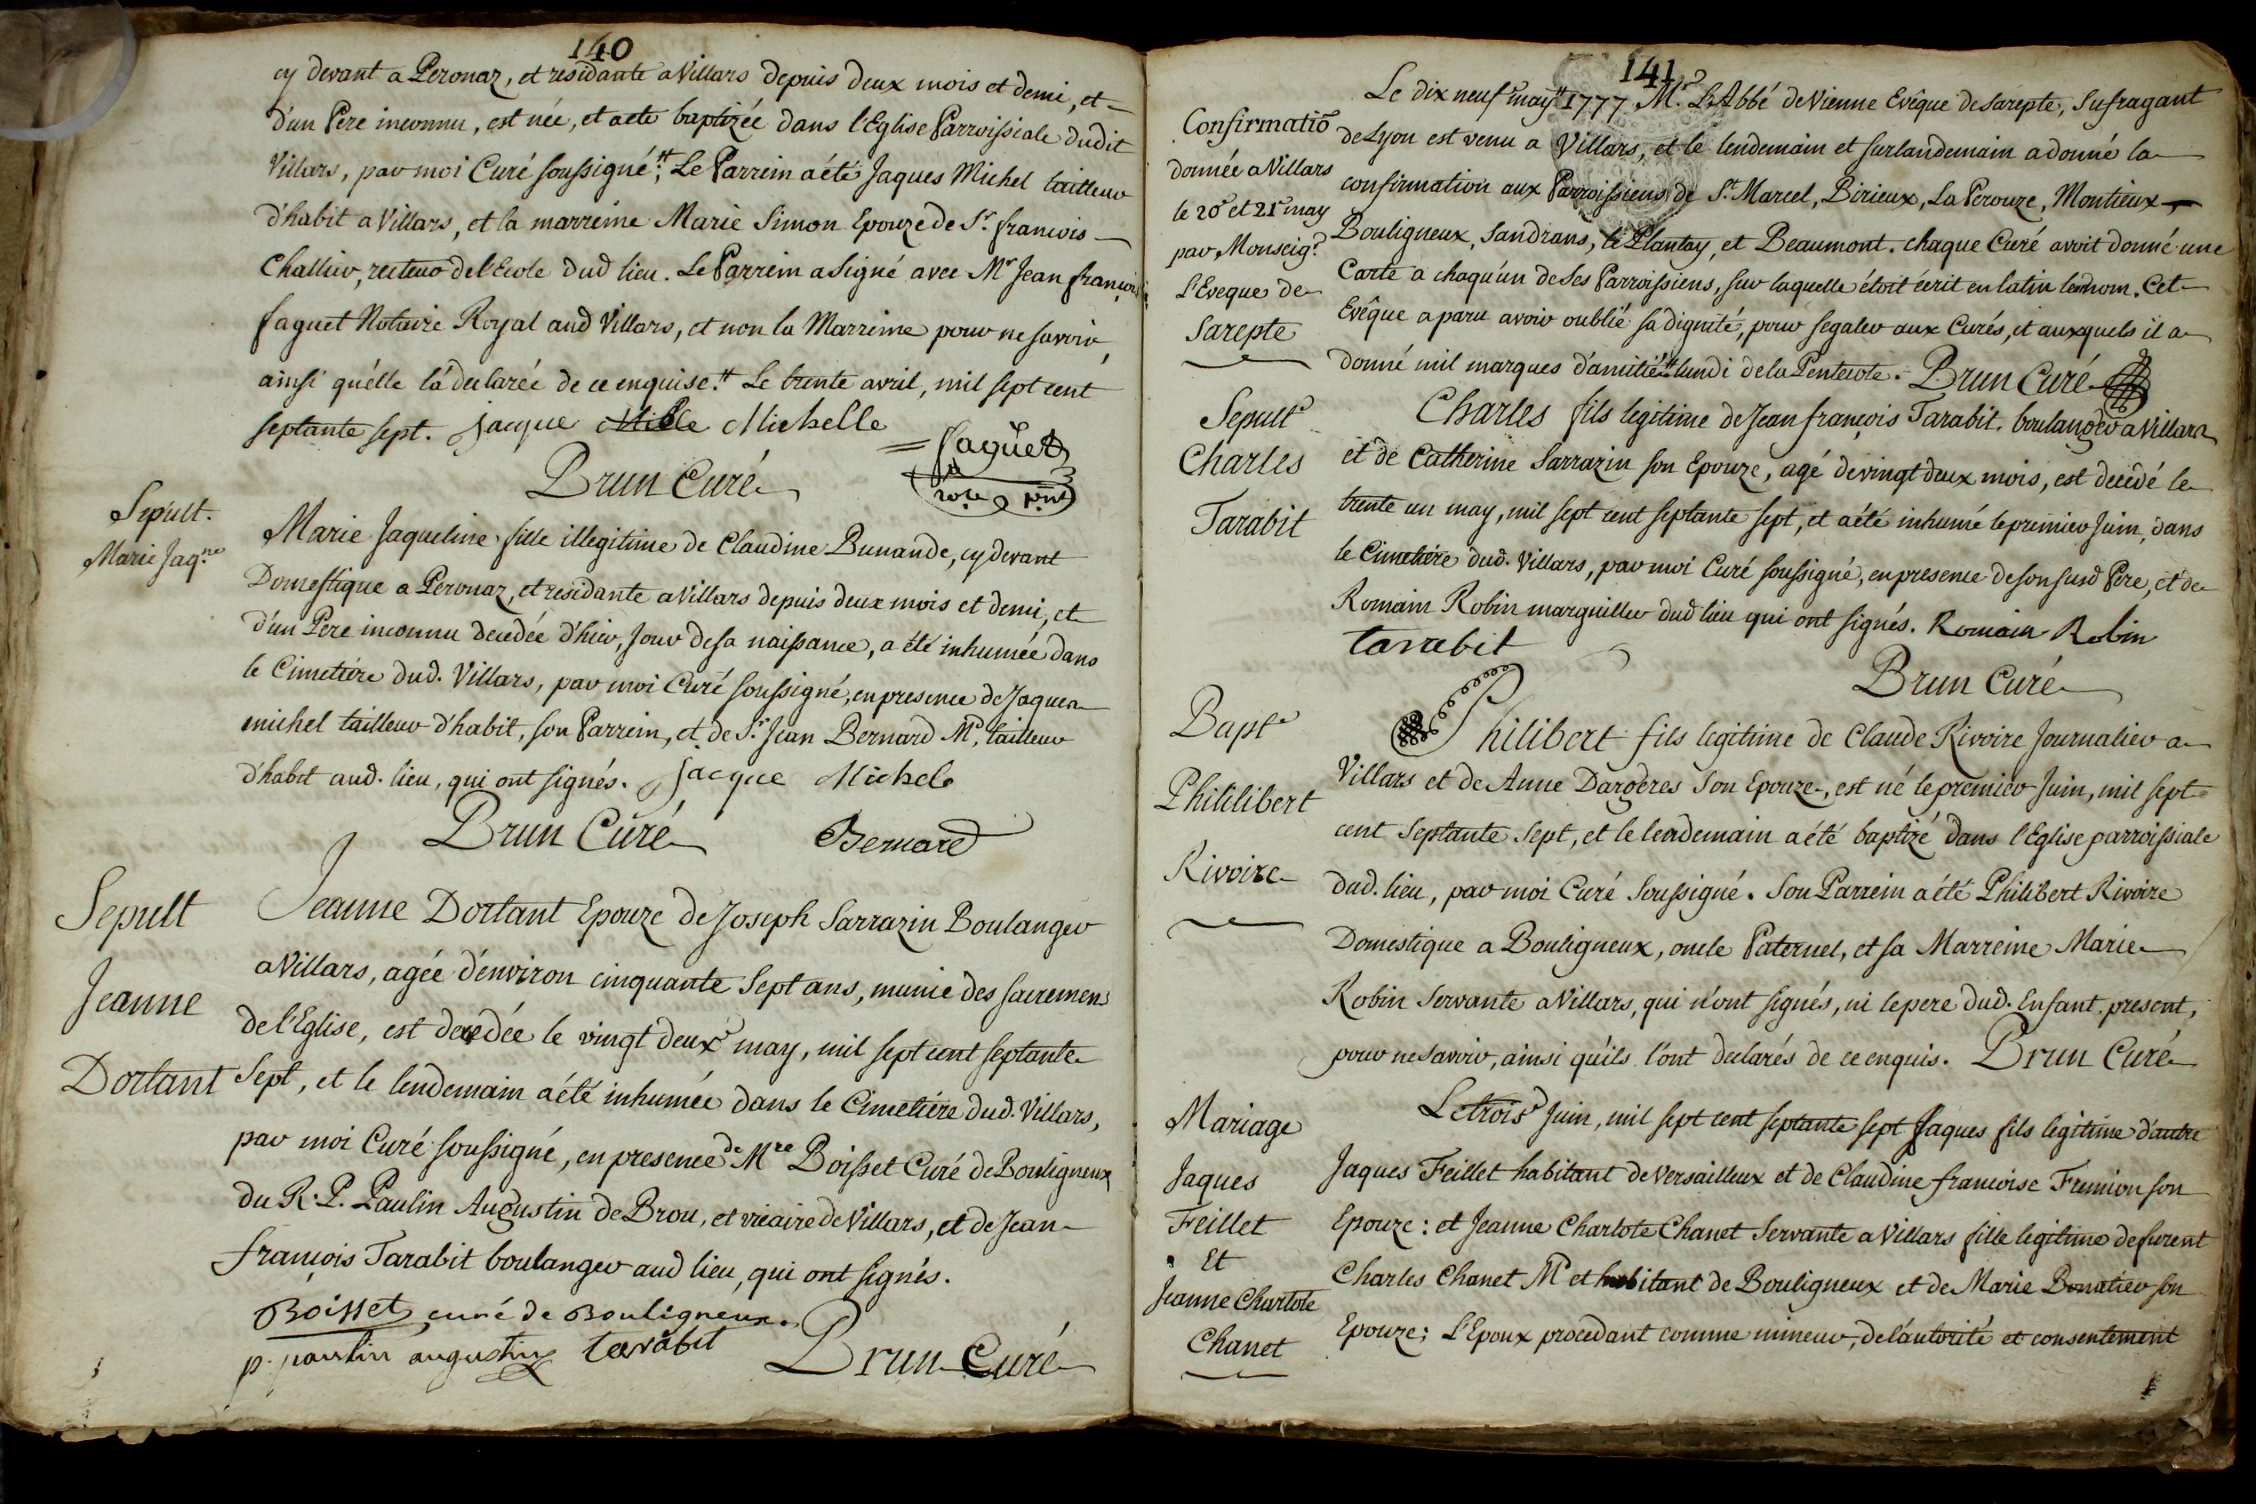 140
cy devant a Peronaz, et residante a Villars depuis deux mois et demi, et
d'un Pere inconnu, est née, et a ete baptizée dans l'Eglise Parroissiale dudit
Villars, par moi Curé soussigné. Le Parrein a été Jaques Michel tailleur
d'habit a Villars, et la marreine Marie Simon Epouze de Sr. françois
Challier, recteur de l'Ecole dud lieu. Le Parrein a signé avec Mr Jean françois
faguet Notaire Royal aud Villars, et non la Marreine pour ne savoir,
ainsi qu'elle l'a declarée de ce enquise. Le trente avril, mil sept cent
septante sept. jacque Michelle
faguet
Brun Curé
Sepult.
Marie Jaq.ne
Marie Jaqueline fille illegitime de Claudine Bunande, cy devant
Domestique a Peronaz, et residante a Villars depuis deux mois et demi, et
d'un Pere inconnu decedée d'hier, Jour de sa naissance, a été inhumée dans
le Cimetière dud. Villars, par moi Curé soussigné, en presence de Jaques
michel tailleur d'habit, son Parrein, et de Sr. Jean Bernard Md. tailleur
d'habit aud. lieu, qui ont signés. jacque Michele
Brun Curé Bernard
Sepult
Jeanne
Dortant
Jeanne Dortant Epouze de Joseph Sarrazin Boulanger
a Villars, agée d'environ cinquante Sept ans, munie des sacremens
de l'Eglise, est decedée le vingt deux may, mil sept cent septante
Sept, et le lendemain a été inhumée dans le Cimetière dud. Villars,
par moi Curé soussigné, en presence de Mre Boisset Curé de Bouligneux
du R. P. Paulin Augustin de Brou, et vicaire de Villars, et de Jean
françois Tarabit boulanger aud lieu, qui ont signés.
Boisset curé de Bouligneux.
p. paulin augustin tarabit Brun Curé
141
Confirmatiõ
donnée a Villars
le 20e et 21e may
par Monseigr
L'Eveque de
Sarepte
Le dix neuf may 1777 Mr. L'Abbé de Vienne Evêque de Sarepte, Sufragant
de Lyon est venu a Villars, et le lendemain et surlandemain a donné la
confirmation aux Parroissiens de St. Marcel, Birieux, La Perouze, Montieux,
Bouligneux, Sandrans, le Plantay, et Beaumont. chaque Curé avoit donné une
Carte a chaqu'un de ses Parroissiens, sur laquelle étoit écrit en latin le nom. Cet
Evêque a paru avoir oublié sa dignité, pour segaler aux Curés, et auxquels il a
donné mil marques d'amitié lundi de la Pentecote. Brun Curé
Sepult
Charles
Tarabit
Charles fils legitime de Jean françois Tarabit, boulanger a Villars
et de Catherine Sarrazin son Epouze, agé de vingt deux mois, est decedé le
trente un may, mil sept cent septante sept, et a été inhumé le premier Juin, dans
le Cimetière dud. Villars, par moi Curé soussigné, en presence de son susd Pere, et de
Romain Robin marguillier dud lieu qui ont signés. Romain Robin
tarrabit
Brun Curé
Bapte
Phililibert
Rivoire
Philibert fils legitime de Claude Rivoire Journalier a
Villars et de Anne Dargères son Epouze, est né le premier Juin, mil sept
cent Septante Sept, et le lendemain a été baptizé dans l'Eglise parroissiale
dud. lieu, par moi Curé Soussigné. Son Parrein a été Philibert Rivoire
Domestique a Bouligneux, oncle Paternel, et sa Marreine Marie
Robin Servante a Villars, qui n'ont signés, ni le pere dud. Enfant present,
pour ne savoir, ainsi qu'ils l'ont declarés de ce enquis. Brun Curé
Mariage
Jaques
Feillet
Et
Jeanne Charlote
Chanet
Le trois Juin, mil sept cent septante sept Jaques fils legitime d'autre
Jaques Feillet habitant de Versailleux et de Claudine francoise Fremion son
Epouze: et Jeanne Charlote Chanet Servante a Villars fille legitime de furent
Charles Chanet Md et habitant de Bouligneux et de Marie Bonatier son
Epouze; L'Epoux procedant comme mineur, de l'autorité et consentement